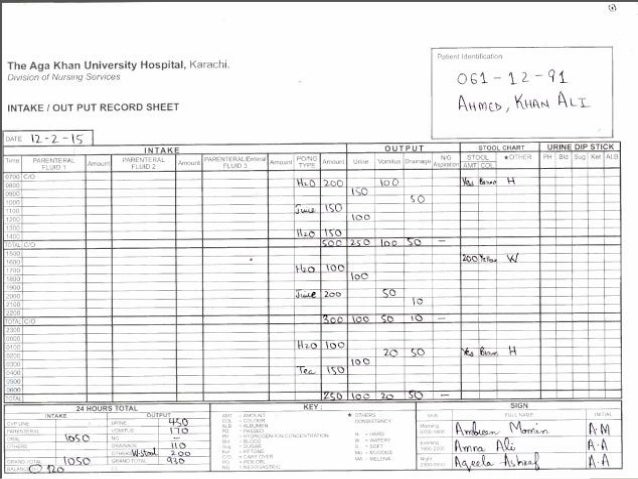 The Aga Khan University Hospital, Karachi.
Division of Nursing Services
Patient Identification
061-12-91
Ahmed, Khan Ali
INTAKE / OUT PUT RECORD SHEET
DATE 12-2-15
INTAKE OUTPUT STOOL CHART URINE DIP STICK
Time PARENTERAL FLUID 1 Amount PARENTERAL FLUID 2 Amount PARENTERAL/Enteral FLUID 3 Amount PO/NG TYPE Amount Urine Vomitus Drainage N/G Aspiration STOOL AMT COL ★OTHER PH Bld Sug Ket ALB
0700 C/O
0800 H2O 200 100 Yes Brown H
0900 150
1000 50
1100 Juice 150
1200 100
1300
1400 H2O 150
TOTAL C/O 500 250 100 50 -
1500
1600 200 Yellow W
1700 H2O 100
1800 100
1900
2000 Juice 200 50
2100 10
2200
TOTAL C/O 300 100 50 10 -
2300
2400
0100 H2O 100
0200 20 50 Yes Brown H
0300 100
0400 Tea 150
0500
0600
TOTAL 250 100 20 50 -
24 HOURS TOTAL KEY: SIGN
INTAKE OUTPUT
URINE 450
VOMITUS 170
ORAL 1050 NG -
OTHERS DRAINAGE 110
OTHERS W.stool 200
GRAND TOTAL 1050 GRAND TOTAL 930
BALANCE 120
AMT = AMOUNT
COL = COLOUR
ALB = ALBUMEN
PO = PER ORAL
NG = NASOGASTRIC
★ OTHERS
CONSISTENCY
H = HARD
W = WATERY
S = SOFT
Shift FULL NAME INITIAL
Morning Ambreen Momin A.M
Evening Amna Ali A.A
Night Aqeela Ashraf A.A